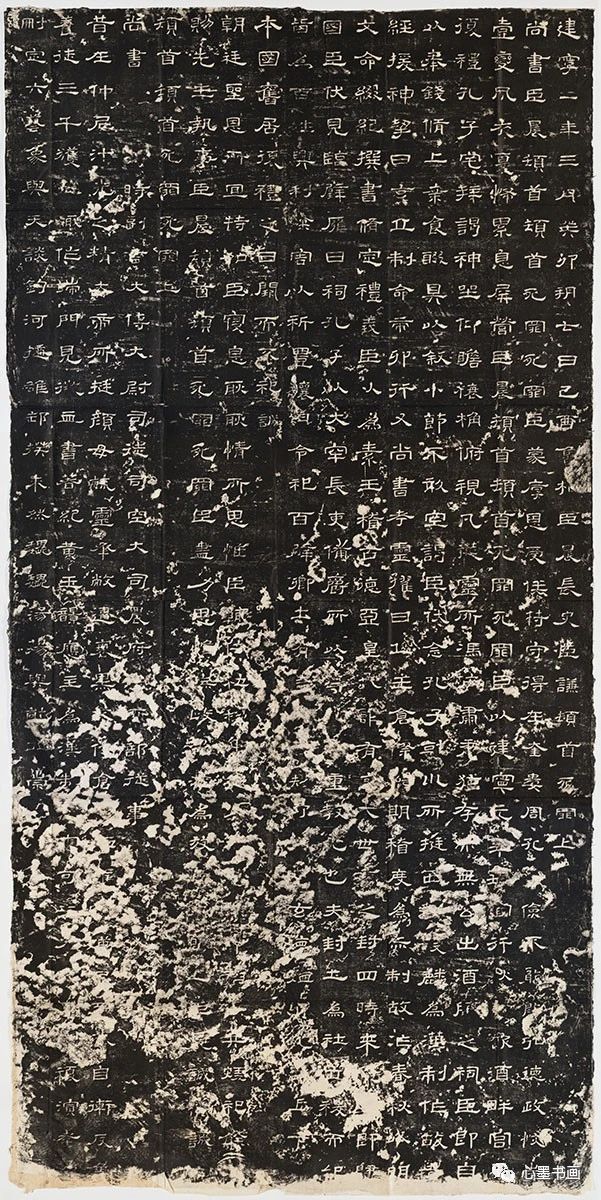 建寧二年三月癸卯朔七日己酉魯相臣晨長史臣謙頓首死罪上
尚書臣晨頓首頓首死罪死罪臣蒙厚恩受任符守得在奎婁周孔舊寓不能闡弘德政恢崇
壹變夙夜憂怖累息屏營臣晨頓首頓首死罪死罪臣以建寧元年到官行秋饗飲酒畔宮
復禮孔子宅拜謁神坐仰瞻榱桷俯視几筵靈所馮依肅肅猶存而無公出酒脯之祠臣即自
以奉錢脩上案食醊具以敘小節不敢空謁臣伏念孔子乾巛所挺西狩獲麟為漢制作故孝
經援神挈曰玄丘制命帝卯行又尚書考靈燿曰丘生倉際觸期稽度為赤制故作春秋以明
文命綴紀撰書脩定禮義臣以為素王稽古德亞皇代雖有褒成世享之封四時來祭畢即歸
國臣伏見臨辟雍日祠孔子以大牢長吏備爵所以尊先師重教化也夫封土為社立稷而祀
皆為百姓興利除害以祈豐穰月令祀百辟卿士有益於民矧乃孔子玄德煥炳光於上下而
本國舊居復禮之日闕而不祀誠
朝廷聖恩所宜特加臣寢息耿耿情所思惟臣輒依社稷出以共煙祀餘
賜先生執事臣晨頓首頓首死罪死罪臣盡力思惟庶政報稱為效臣晨誠惶誠恐
頓首頓首死罪死罪上
尚書 時副言大傅大尉司徒司空大司農府治所部從事
昔在仲尼汁光之精大帝所挺顏母毓靈承敝遭衰黑不代倉應聘嘆自衛反魯
養徒三千獲麟趣作端門見徵血書著紀黃玉韻應主為漢制道審可行乃作復演孝
刪定六藝象與天談鈎河擿雒卻揆未然巍巍蕩蕩與乾比崇
心墨书画